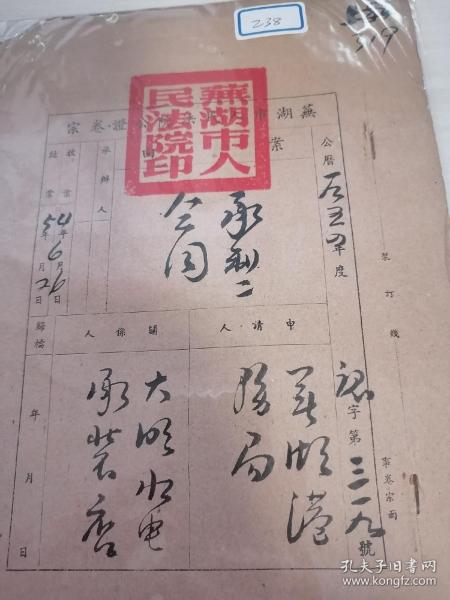 238
319
蕪湖市人民法院印
蕪湖市
證卷宗
公曆一九五四年度
案
面
承辦人
收案
54年6月26日
結案
54年6月2日
歸檔
年 月 日
申請人
蕪湖港務局
關係人
大明水电
承裝店
合同
字第三一九號
裝訂綫
事卷宗面
孔夫子旧书网
www.kongfz.com